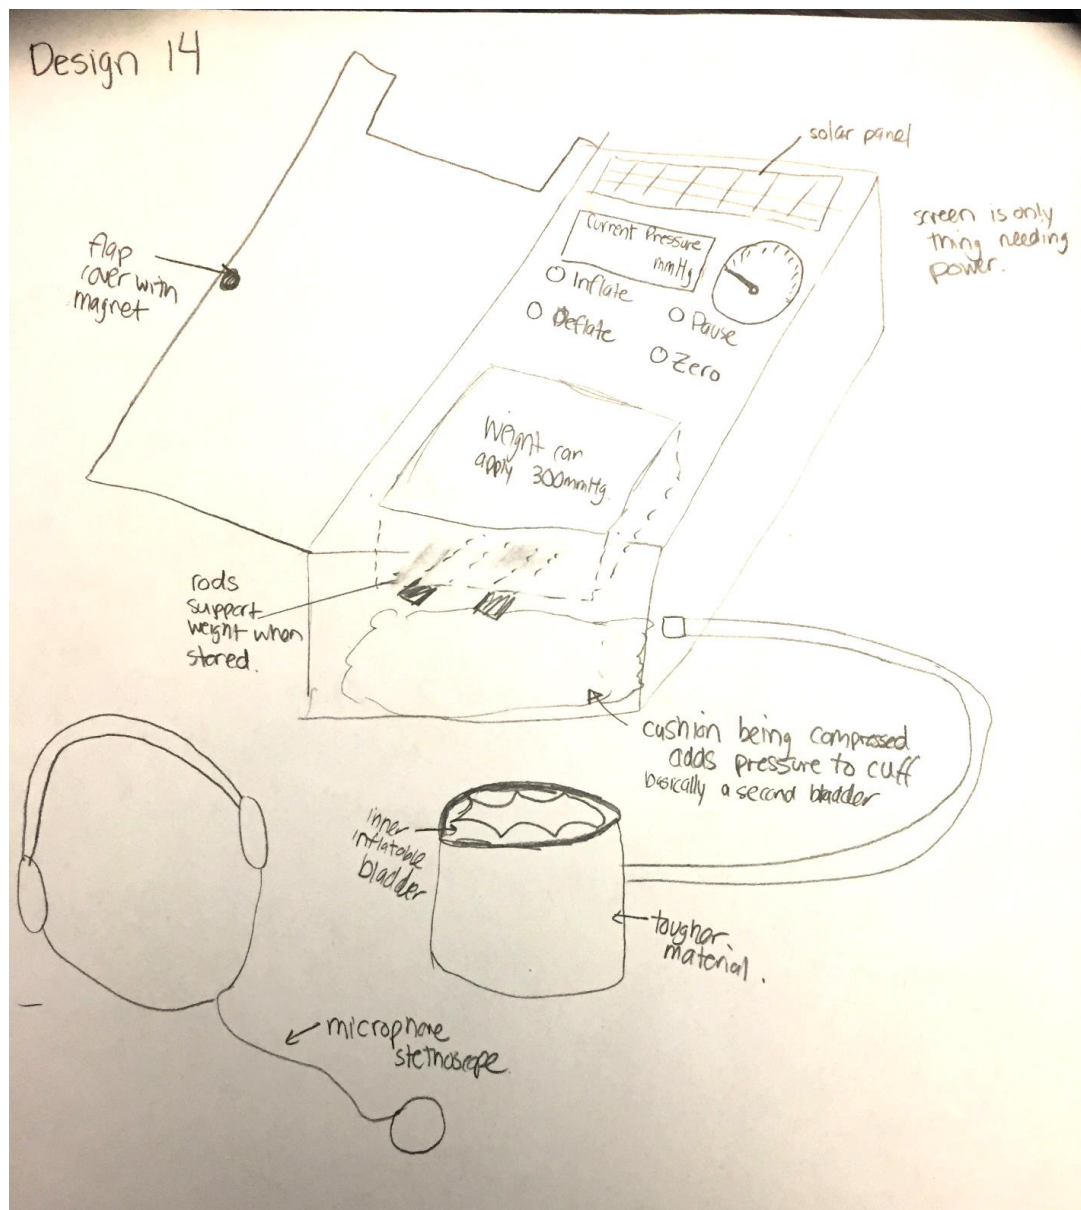 Design 14
solar panel
screen is only
thing needing
power.
flap
cover with
magnet
Current Pressure
mmHg
Inflate
Deflate
Pause
Zero
Weight can
apply 300mmHg.
rods
support
weight when
stored.
cushion being compressed
adds pressure to cuff
basically a second bladder
inner
inflatable
bladder
tougher
material.
microphone
stethoscope.